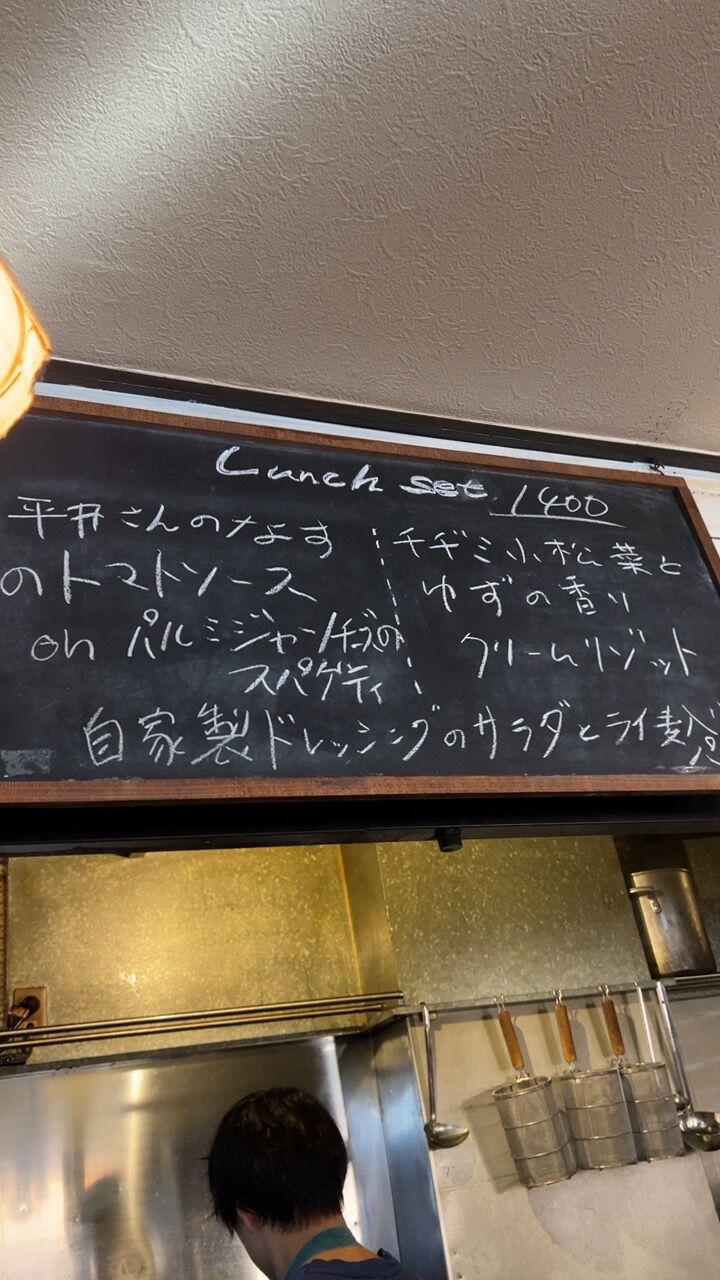 Lunch set 1400
平井さんのなす
のトマトソース
on パルミジャーノチーズの
スパゲティ
チヂミ小松菜と
ゆずの香り
クリームリゾット
自家製ドレッシングのサラダとライ麦パ